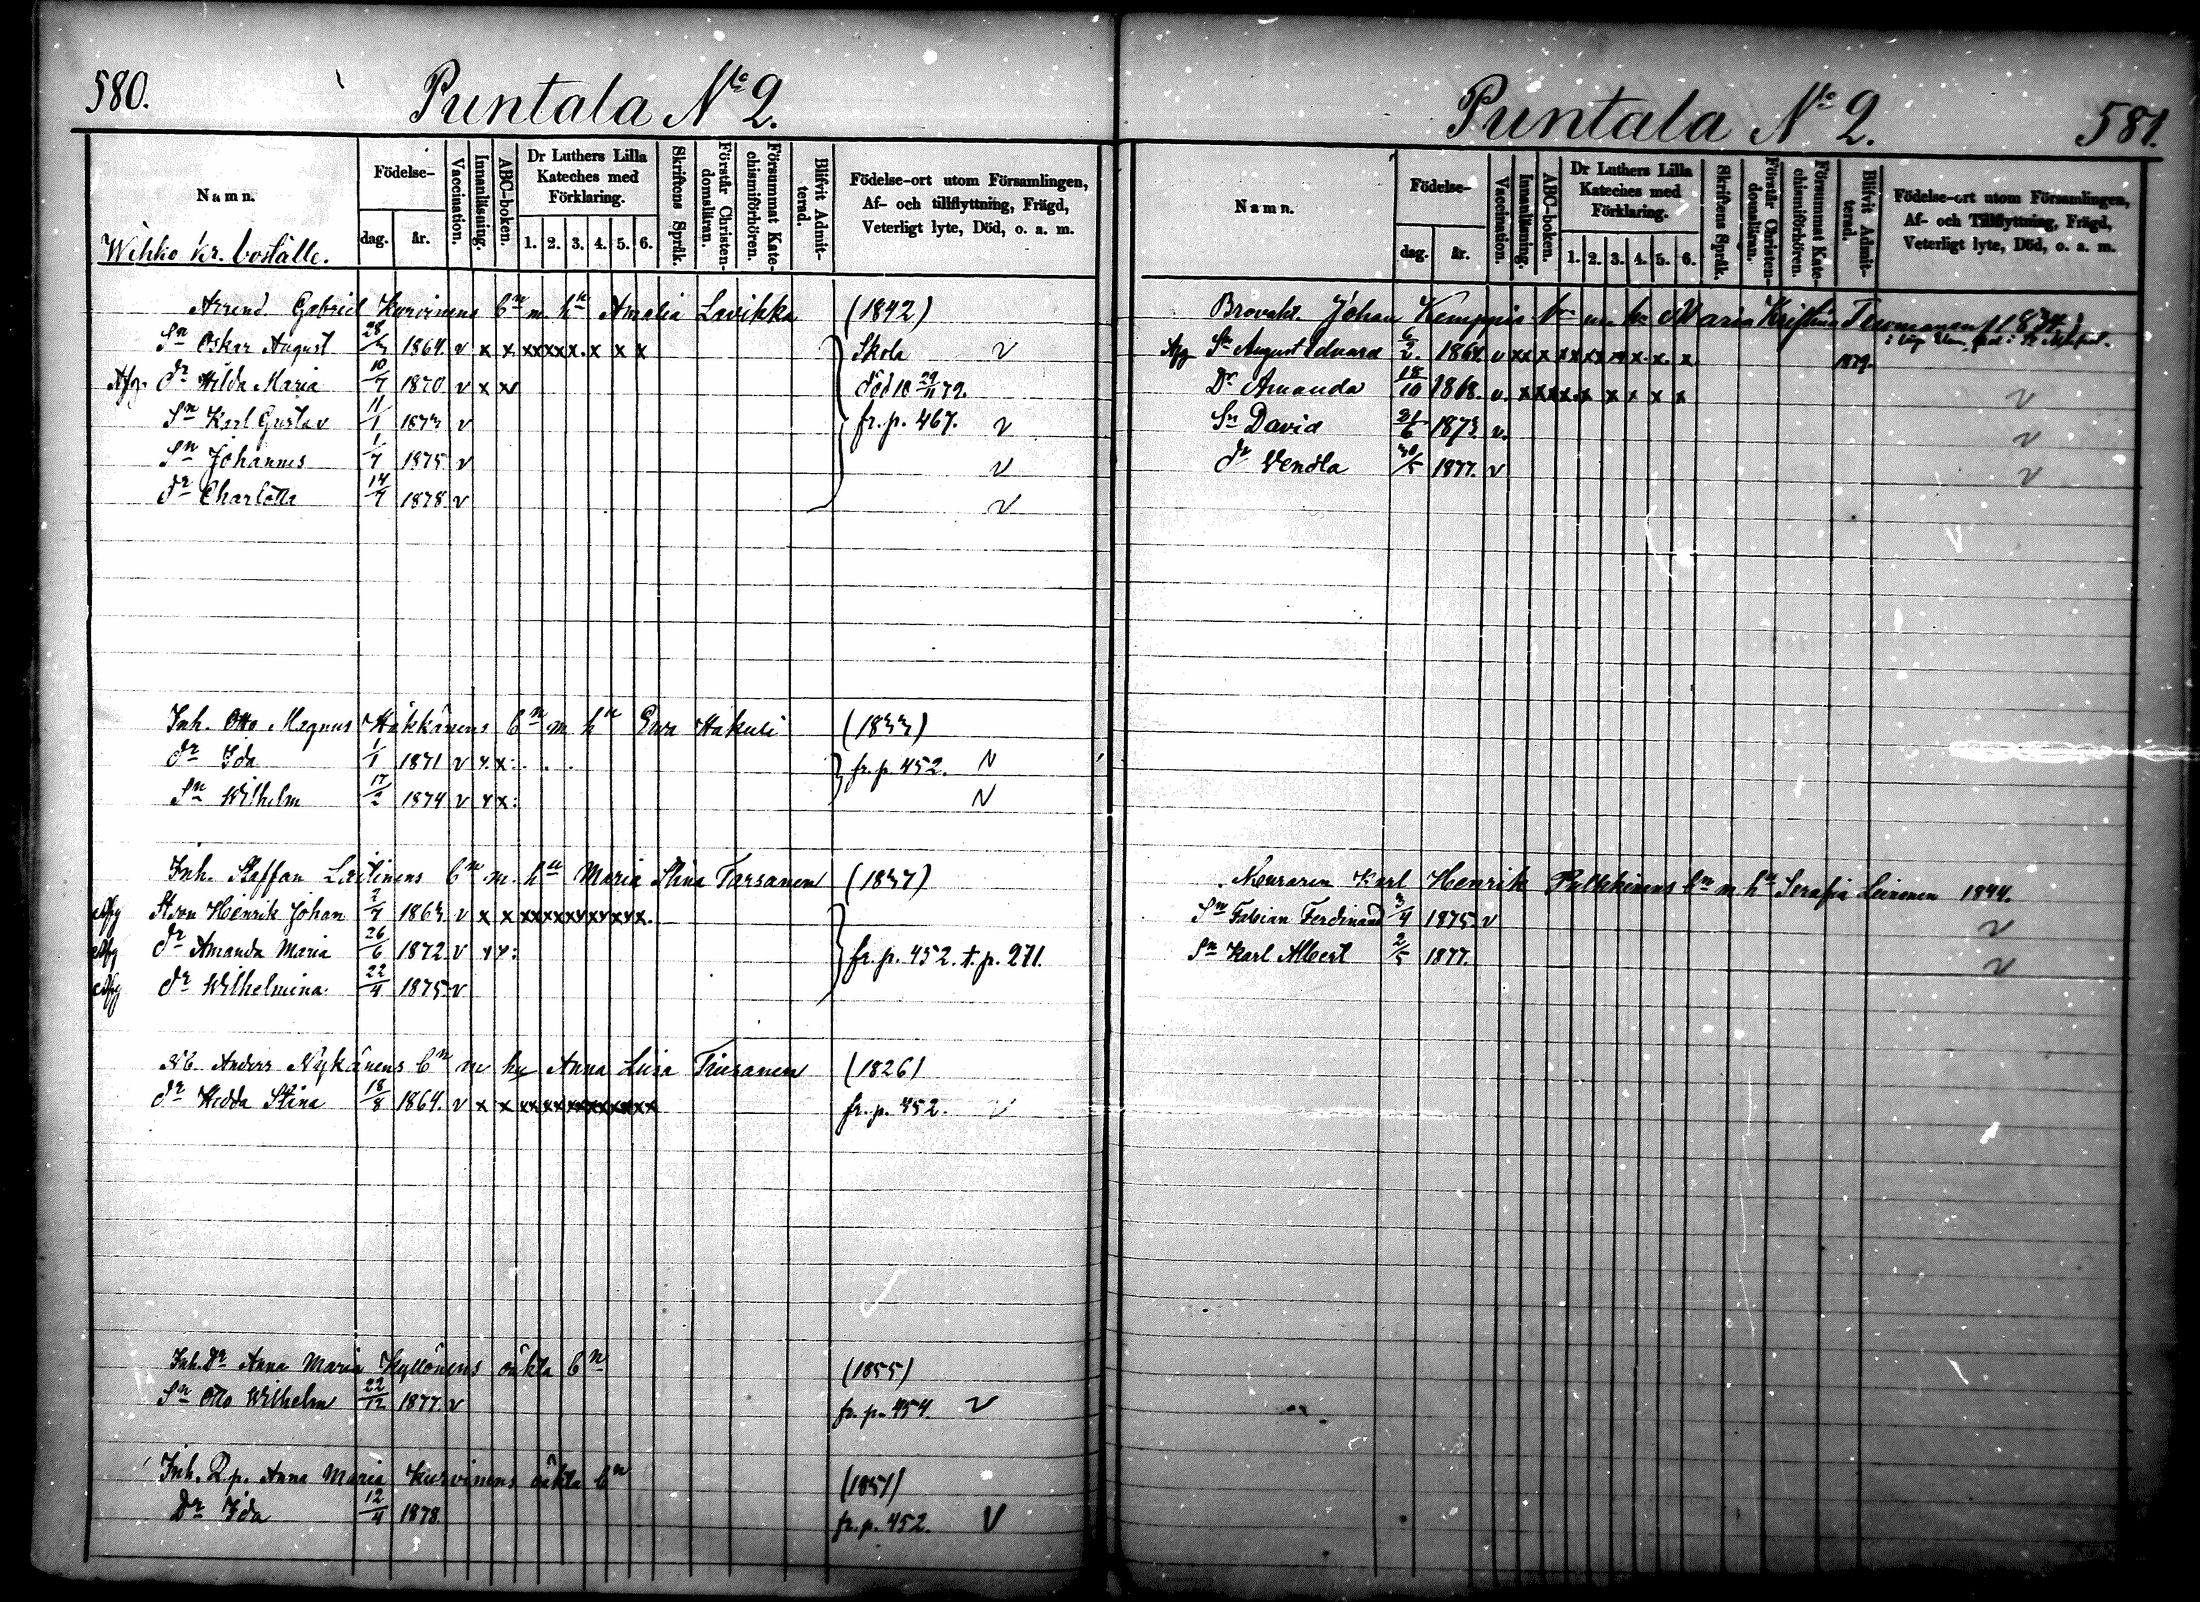 580.
Puntala No 2.
Namn.
Födelse-
dag.
år.
Vaccination.
Innanläsning.
ABC-boken.
Dr Luthers Lilla
Kateches med
Förklaring.
1. 2. 3. 4. 5. 6.
Skriftens Språk.
Förstår Christen-
domsläran.
Försummat Kate-
chismiförhören.
Blifvit Admit-
terad.
Födelse-ort utom Församlingen,
Af- och tillflyttning, Frägd,
Veterligt lyte, Död, o. a. m.
Wihko kr. boställe.
Arrend. Gabriel Kurvinens bn m hu Amalia Lavikka (1842)
Sn Oskar August 1864. v x x xxxxx. x x x Skola v
Afg. dr Hilda Maria 10/7 1870 v x x död 10
Sn Karl Gustav 11/1 1873 v fr. p. 467. v
Sn Johannes 1/7 1875 v v
dr Charlotta 14/7 1878 v v
Inh. Otto Magnus Häkkänens bn m hu Ewa Hakuli (1833)
dr Ida 1/1 1871 v x x: . . . fr. p. 452. v
Sn Wilhelm 17/2 1874 v x x: v
Inh. Staffan Laitinens bn m. hu Maria Stina Tarsanen (1837)
Afg Henrik Johan 2/7 1863 v x x xxxxxxxxxxx.
Afg dr Amanda Maria 26/6 1872 v x x: fr. p. 452. t. p. 271.
Afg dr Wilhelmina 22/4 1875 v
Anders Nykänens bn m hu Anna Lisa Tiusanen (1826)
dr Hedda Stina 18/8 1864. v x x xxxxxxxxxxxx fr. p. 452. v
Inh. Dr Anna Maria Kyllönens oäkta bn (1855)
Sn Otto Wilhelm 22/12 1877. v fr. p. 454. v
Inh. Anna Maria Kurvinens oäkta bn (1851)
Dr Ida 12/4 1878. fr. p. 452. v
Puntala No 2.
581.
Namn.
Födelse-
dag.
år.
Vaccination.
Innanläsning.
ABC-boken.
Dr Luthers Lilla
Kateches med
Förklaring.
1. 2. 3. 4. 5. 6.
Skriftens Språk.
Förstår Christen-
domsläran.
Försummat Kate-
chismiförhören.
Blifvit Admit-
terad.
Födelse-ort utom Församlingen,
Af- och Tillflyttning, Frägd,
Veterligt lyte, Död, o. a. m.
Brovakt. Johan Kemppis bn m hu Maria Kristina (1834)
Afg Sn August Edvard 1864. v xx x xxxxx x. x. x 1879.
Dr Amanda 18/10 1868. v. xxxxx x x x x v
Sn David 21/6 1873. v. v
dr Vendla 30/5 1877. v v
Muraren Karl Henrik Pulkkinens bn m hu Serafia Leinonen 1844.
Sn Fabian Ferdinand 3/4 1875. v v
Sn Karl Albert 2/5 1877. v